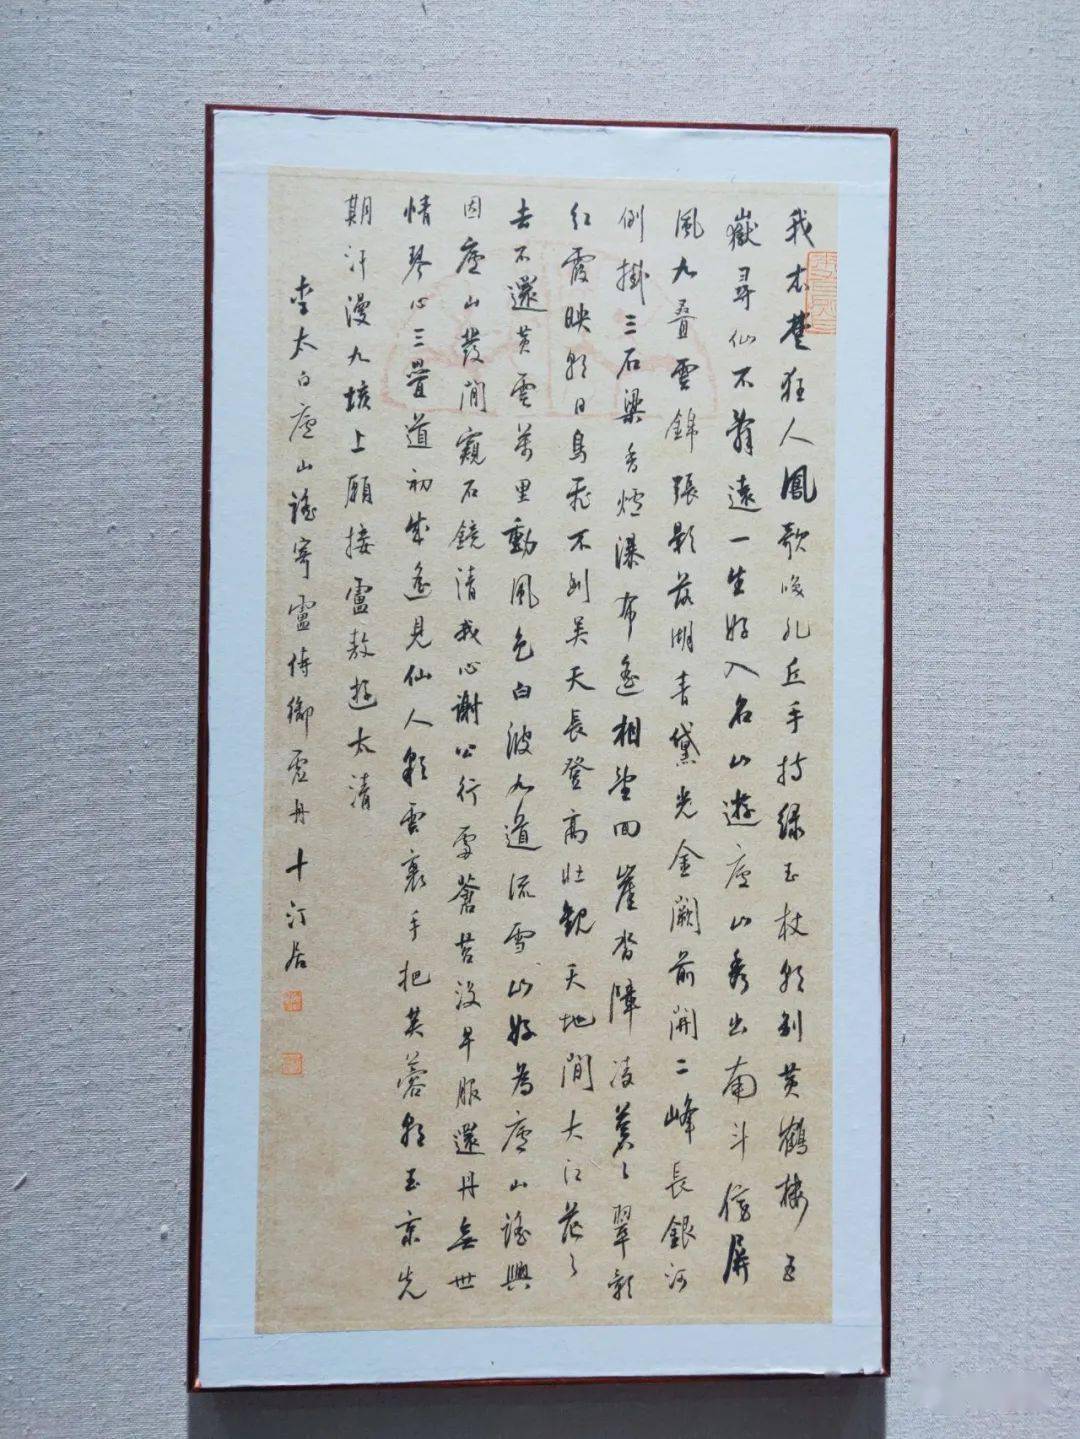 我本楚狂人鳳歌咲孔丘手持綠玉杖朝別黃鶴樓五
嶽尋仙不辭遠一生好入名山遊廬山秀出南斗傍屏
風九疊雲錦張影落湖青黛光金闕前開二峰長銀河
倒掛三石梁香爐瀑布遙相望回崖沓障凌蒼々翠影
紅霞映朝日鳥飛不到吳天長登高壯觀天地間大江茫々
去不還黃雲萬里動風色白波九道流雪山好為廬山謠興
因廬山發閒窺石鏡清我心謝公行處蒼苔沒早服還丹無世
情琴心三疊道初成遙見仙人彩雲裏手把芙蓉朝玉京先
期汗漫九垓上願接盧敖遊太清
李太白廬山謠寄盧侍御虛舟 十汀居